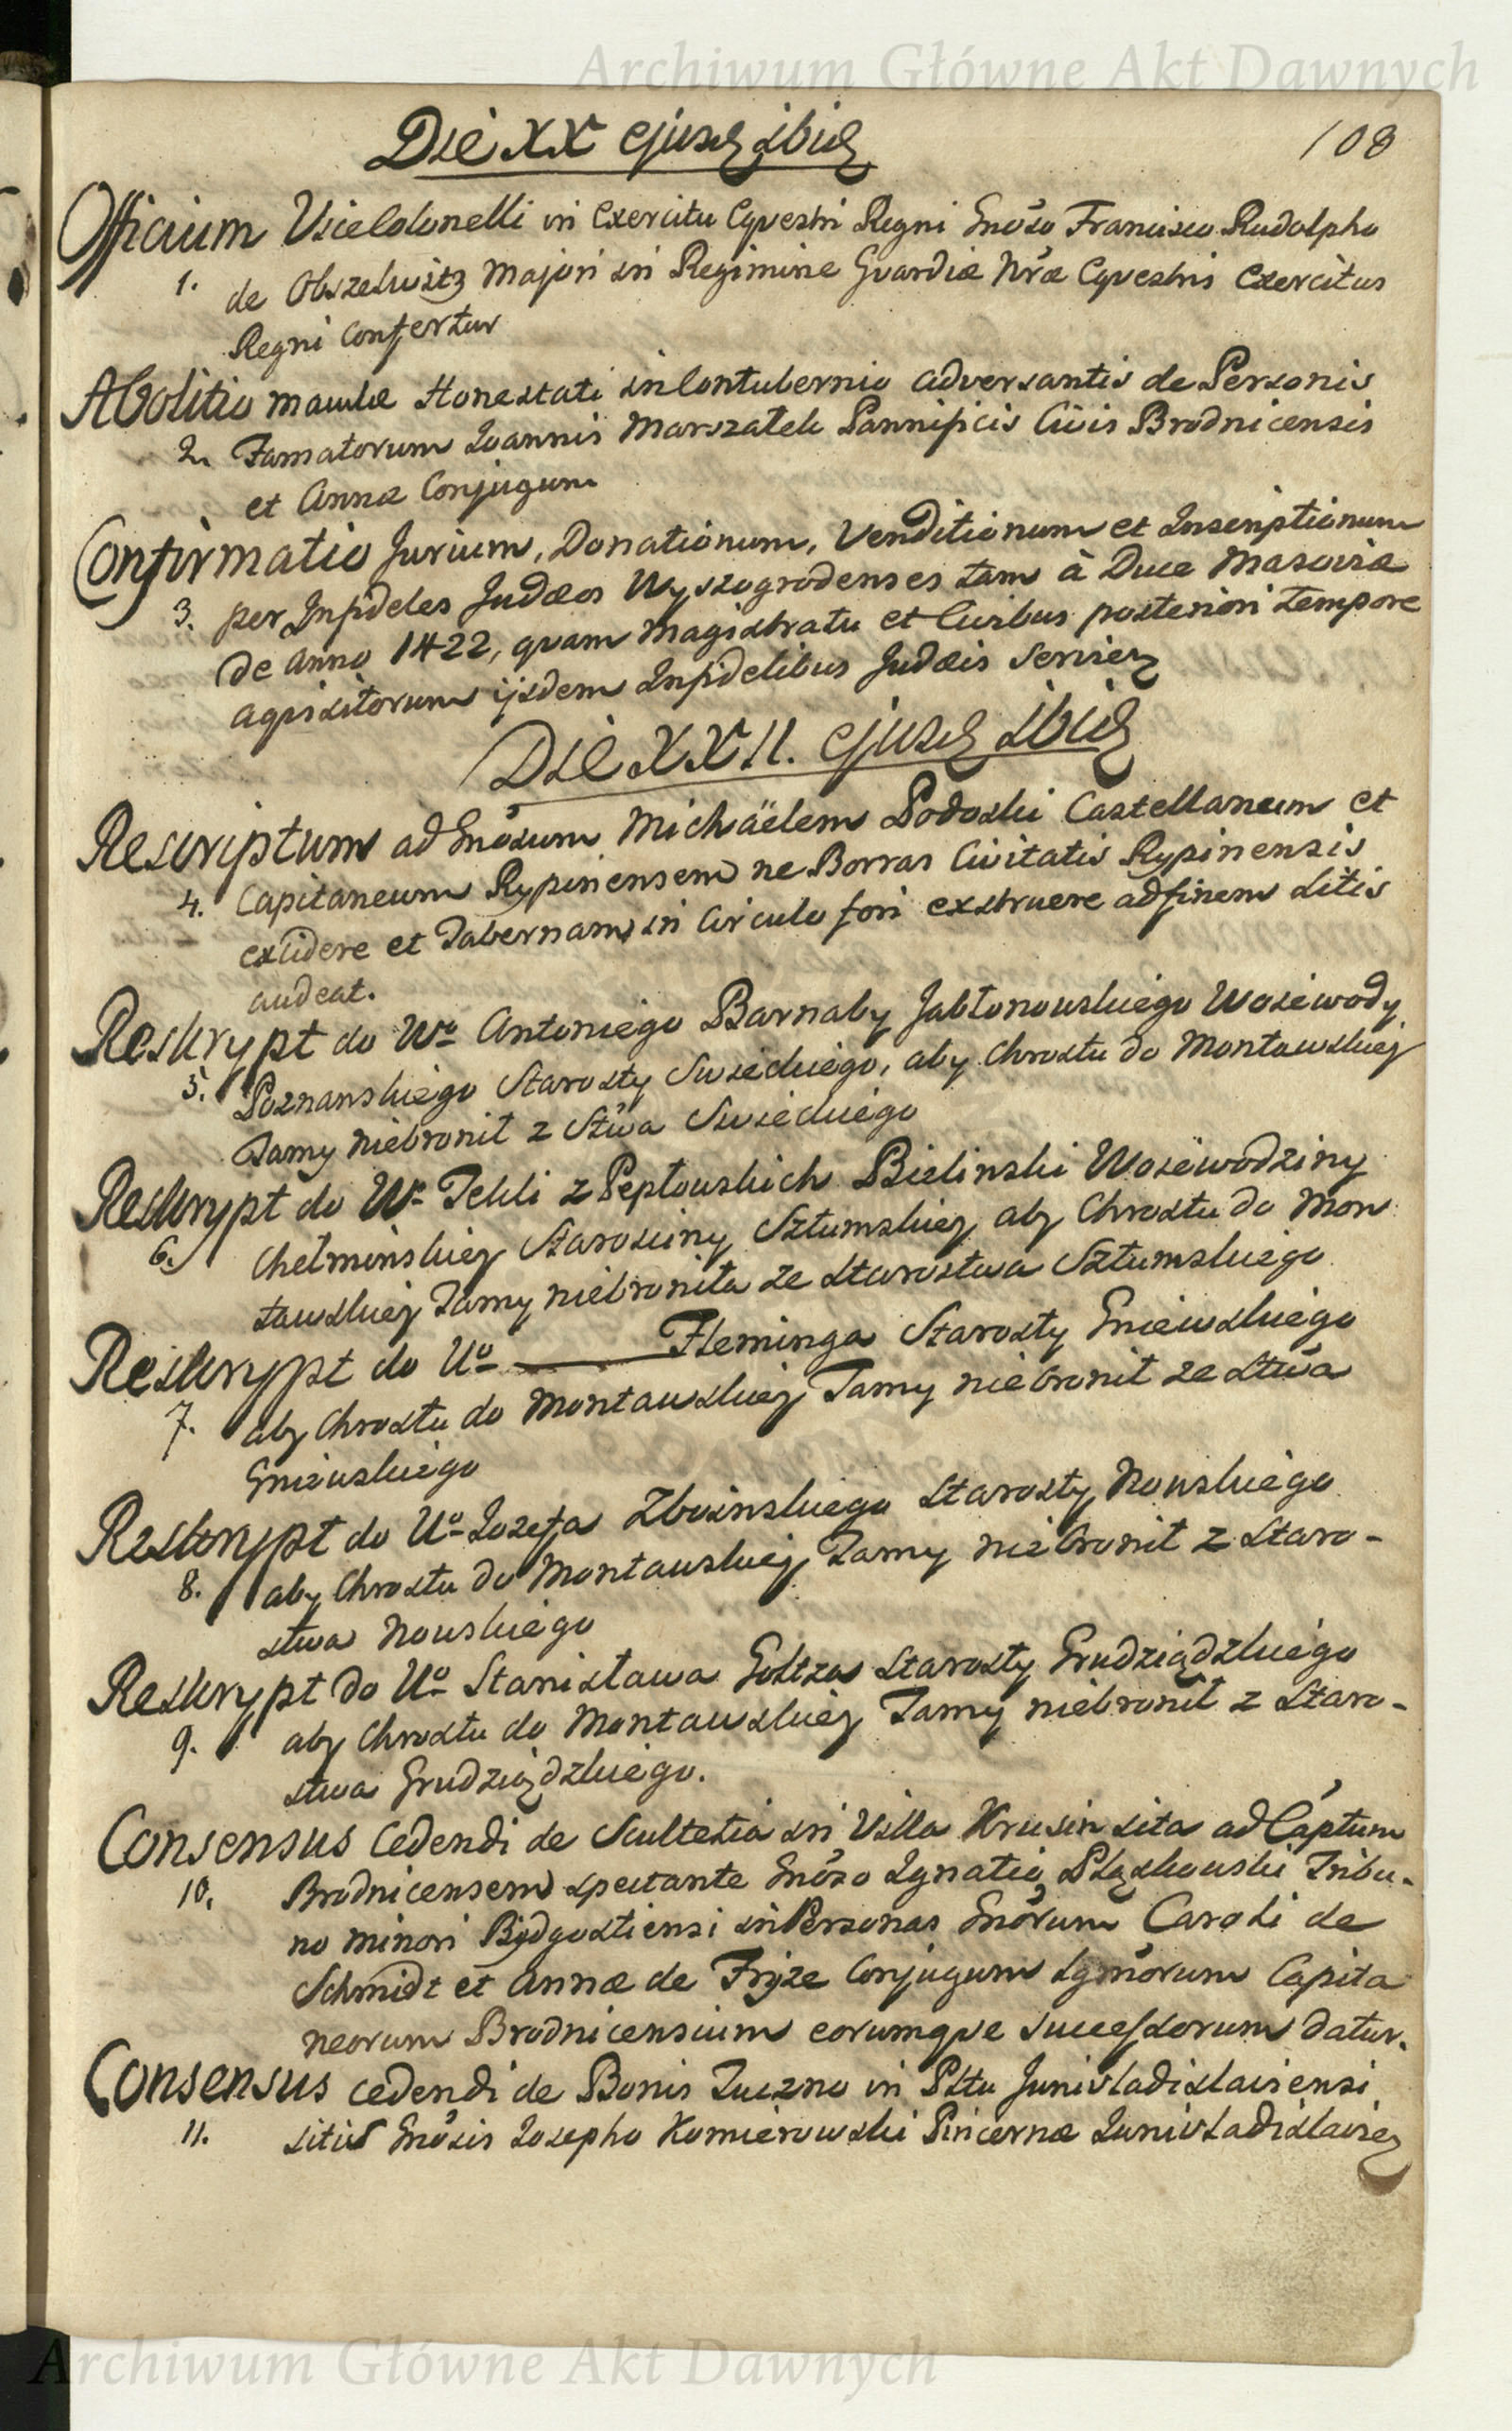 Archiwum Główne Akt Dawnych
108
Die XX ejusd ibid
Officium Vicelolonelli in Exercitu Eqvestri Regni Gnoso Francisco Rudolpho
1. de Obszelwitz Majori in Regimine Gvardiæ Nræ Eqvestris Exercitus
Regni Confertur
Abolitio maculæ Honestati in Contubernio adversantis de Personis
2. Famatorum Ioannis Marszałek Pannificis Civis Brodnicensis
et Annæ Conjugum
Confirmatio Jurium, Donationum, Venditionum et Inscriptionum
3. per Infideles Judæos Wyszogrodenses tam à Duce Masoviæ
de Anno 1422, qvam Magistratu et Civibus posteriori tempore
aqvisitorum ijsdem Infidelibus Judæis Servien
Die XXII. ejusd ibid
Rescriptum ad Gnosum Michäelem Podoski Castellaneum et
4. Capitaneum Rypinensem ne Borras Civitatis Rypinensis
exCidere et Tabernam in Circulo fori exstruere ad finem Litis
audeat.
Reskrypt do Wo Antoniego Barnaby Jabłonowskiego Woiewody
5. Poznanskiego Starosty Swieckiego, aby Chrostu do Montawskiey
Tamy niebronił z Stwa Swieckiego
Reskrypt do Wr Tekli z Pepłowskich Bielinski Woiewodziny
6. Chełminskiey Starosciny Sztumskiey aby Chrostu do Mon
tawskiey Tamy niebroniła ze starostwa Sztumskiego
Reskrypt do Uo ——— Fleminga Starosty Gniewskiego
7. aby Chrostu do Montawskiey Tamy niebronił ze Stwa
Gniewskiego
Reskrypt do Uo Iozefa Zboinskiego Starosty Nowskiego
8. aby Chrostu do Montawskiey Tamy niebronił z Staro-
stwa Nowskiego
Reskrypt do Uo Stanisława Goltza Starosty Grudziądzkiego
9. aby Chrostu do Montawskiey Tamy niebronił z Staro-
stwa Grudziądzkiego.
Consensus Cedendi de Scultetia in Villa Krusin sita ad Cáptum
10. Brodnicensem spectante Gnoso Ignatio Pląskowski Tribu-
no minori Bydgostiensi in Personas Gnorum Caroli de
Schmidt et Annæ de Frÿze Conjugum Igmorum Capita
neorum Brodnicensium eorumqve successorum datur.
Consensus cedendi de Bonis Tuczno in Pttu Junivladislaviensi
11. sitis Gnosis Iosepho Komierowski Pincernæ Junivladislavien
Archiwum Główne Akt Dawnych